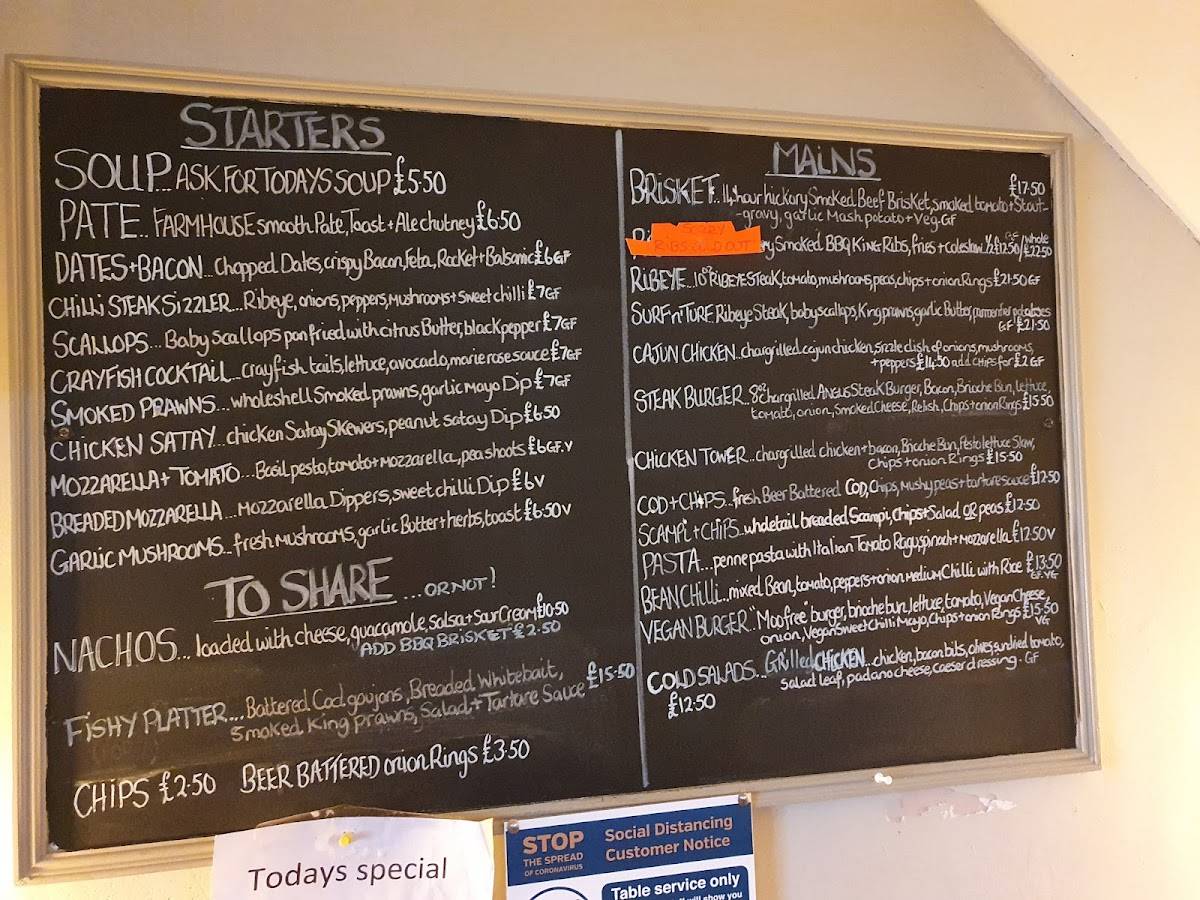 STARTERS
SOUP... ASK FOR TODAYS SOUP £5·50
PATE.. FARMHOUSE smooth Pate, Toast + Ale chutney £6·50
DATES + BACON... Chopped Dates, crispy Bacon, Feta, Rocket + Balsamic £6 GF
CHILLI STEAK SIZZLER... Ribeye, onions, peppers, mushrooms + sweet chilli £7 GF
SCALLOPS... Baby scallops pan fried with citrus Butter, black pepper £7 GF
CRAYFISH COCKTAIL... crayfish tails, lettuce, avocado, marie rose sauce £7 GF
SMOKED PRAWNS... wholeshell Smoked prawns, garlic Mayo Dip £7 GF
CHICKEN SATAY... chicken Satay Skewers, peanut satay Dip £6·50
MOZZARELLA + TOMATO... Basil pesto, tomato + mozzarella, pea shoots £6 GF.V
BREADED MOZZARELLA... mozzarella Dippers, sweet chilli Dip £6 V
GARLIC MUSHROOMS... fresh mushrooms, garlic Butter + herbs, toast £6·50 V
TO SHARE ... OR NOT!
NACHOS... loaded with cheese, guacamole, salsa + Sour Cream £10·50
ADD BBQ BRISKET £2.50
FISHY PLATTER... Battered Cod goujons, Breaded Whitebait, £15·50
Smoked King prawns, Salad + Tartare Sauce
CHIPS £2·50 BEER BATTERED onion Rings £3·50
MAINS
BRISKET.. 14 hour hickory Smoked Beef Brisket, smoked tomato + Stout £17·50
-gravy, garlic Mash potato + Veg-GF
SORRY
RIBS SOLD OUT
Smoked BBQ King Ribs, fries + coleslaw ½ £12·50 / whole £22·50
RIBEYE... 10oz RIBEYE Steak, tomato, mushrooms, peas, chips + onion Rings £21·50 GF
SURF n' TURF. Ribeye Steak, baby scallops, King prawns, garlic Butter, parmentier potatoes
GF £21·50
CAJUN CHICKEN.. chargrilled cajun chicken, sizzle dish of onions, mushrooms,
+ peppers £14·50 add CHIPS for £2 GF
STEAK BURGER.. 8oz chargrilled ANGUS Steak Burger, Bacon, Brioche Bun, lettuce,
tomato, onion, Smoked Cheese, Relish, Chips + onion Rings £15·50
CHICKEN TOWER... chargrilled chicken + bacon, Brioche Bun, Pesto lettuce Slaw,
Chips + onion Rings £15·50
COD + CHIPS.. fresh Beer Battered COD, Chips, mushy peas + tartare sauce £12·50
SCAMPI + CHIPS.. wholetail breaded Scampi, Chips + Salad OR peas £12·50
PASTA... penne pasta with Italian Tomato Ragu, spinach + mozzarella £12·50 V
BEAN CHILLI... mixed Bean, tomato, peppers + onion medium Chilli with Rice £13·50
GF. VG
VEGAN BURGER.. "Moo free" burger, brioche bun, lettuce, tomato, Vegan Cheese,
onion, Vegan Sweet Chilli Mayo, Chips + onion Rings £15·50
VG
COLD SALADS... Grilled CHICKEN... chicken, bacon bits, olives, sundried tomato,
salad leaf, padano cheese, caeser dressing - GF
£12·50
Todays special
STOP
THE SPREAD
OF CORONAVIRUS
Social Distancing
Customer Notice
Table service only
will show you